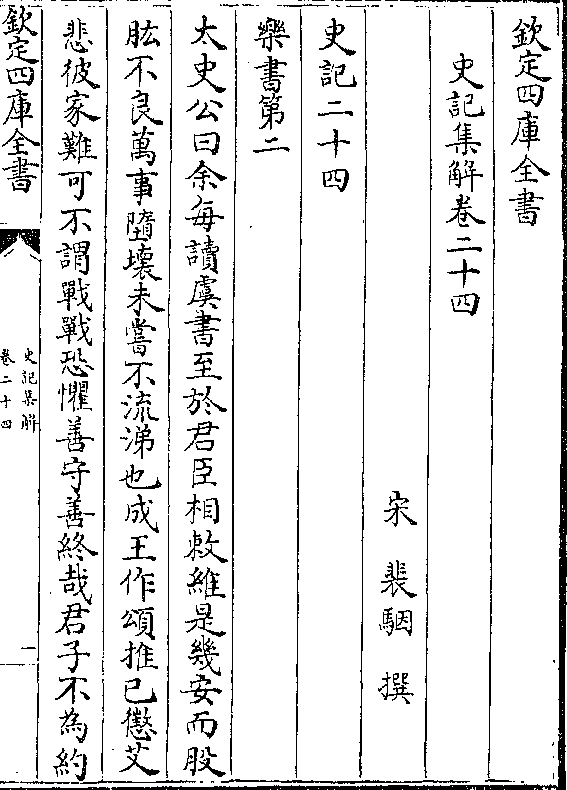 欽定四庫全書
史記集解卷二十四
宋 裴駰 撰
史記二十四
樂書第二
太史公曰余每讀虞書至於君臣相敕維是幾安而股
肱不良萬事墮壞未嘗不流涕也成王作頌推已懲艾
悲彼家難可不謂戰戰恐懼善守善終哉君子不為約
欽定四庫全書
史記集解
卷二十四
一